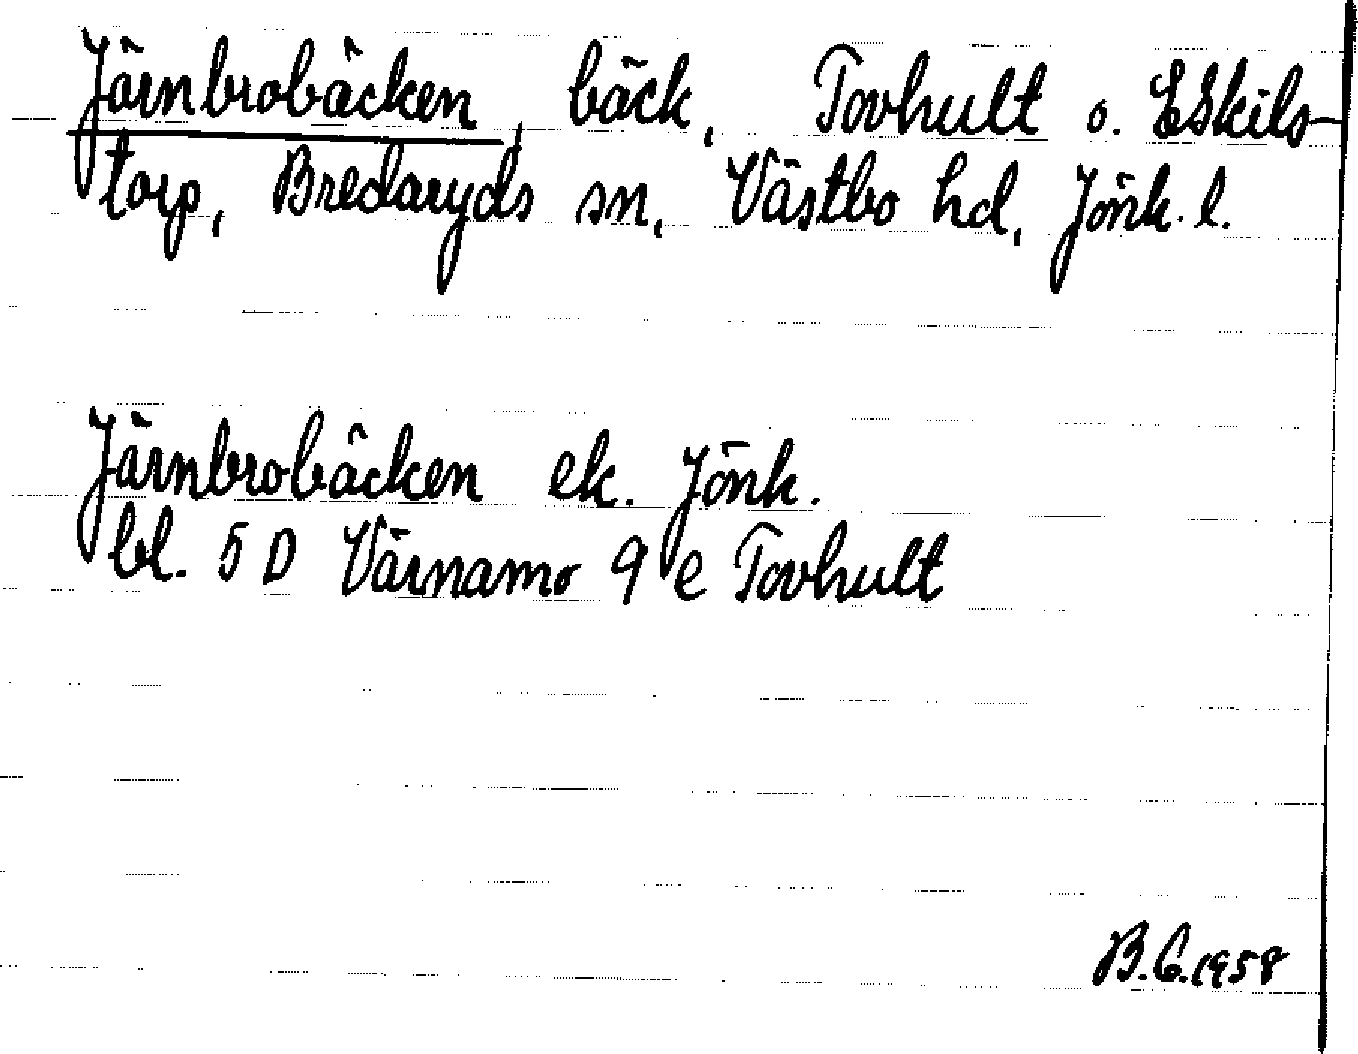 Järnbrobäcken, bäck, Tovhult o. Eskils-
torp, Bredaryds sn, Västbo hd, Jönk. l.
Järnbrobäcken ek. Jönk.
bl. 5 D Värnamo 9 e Tovhult
B.C. 1958